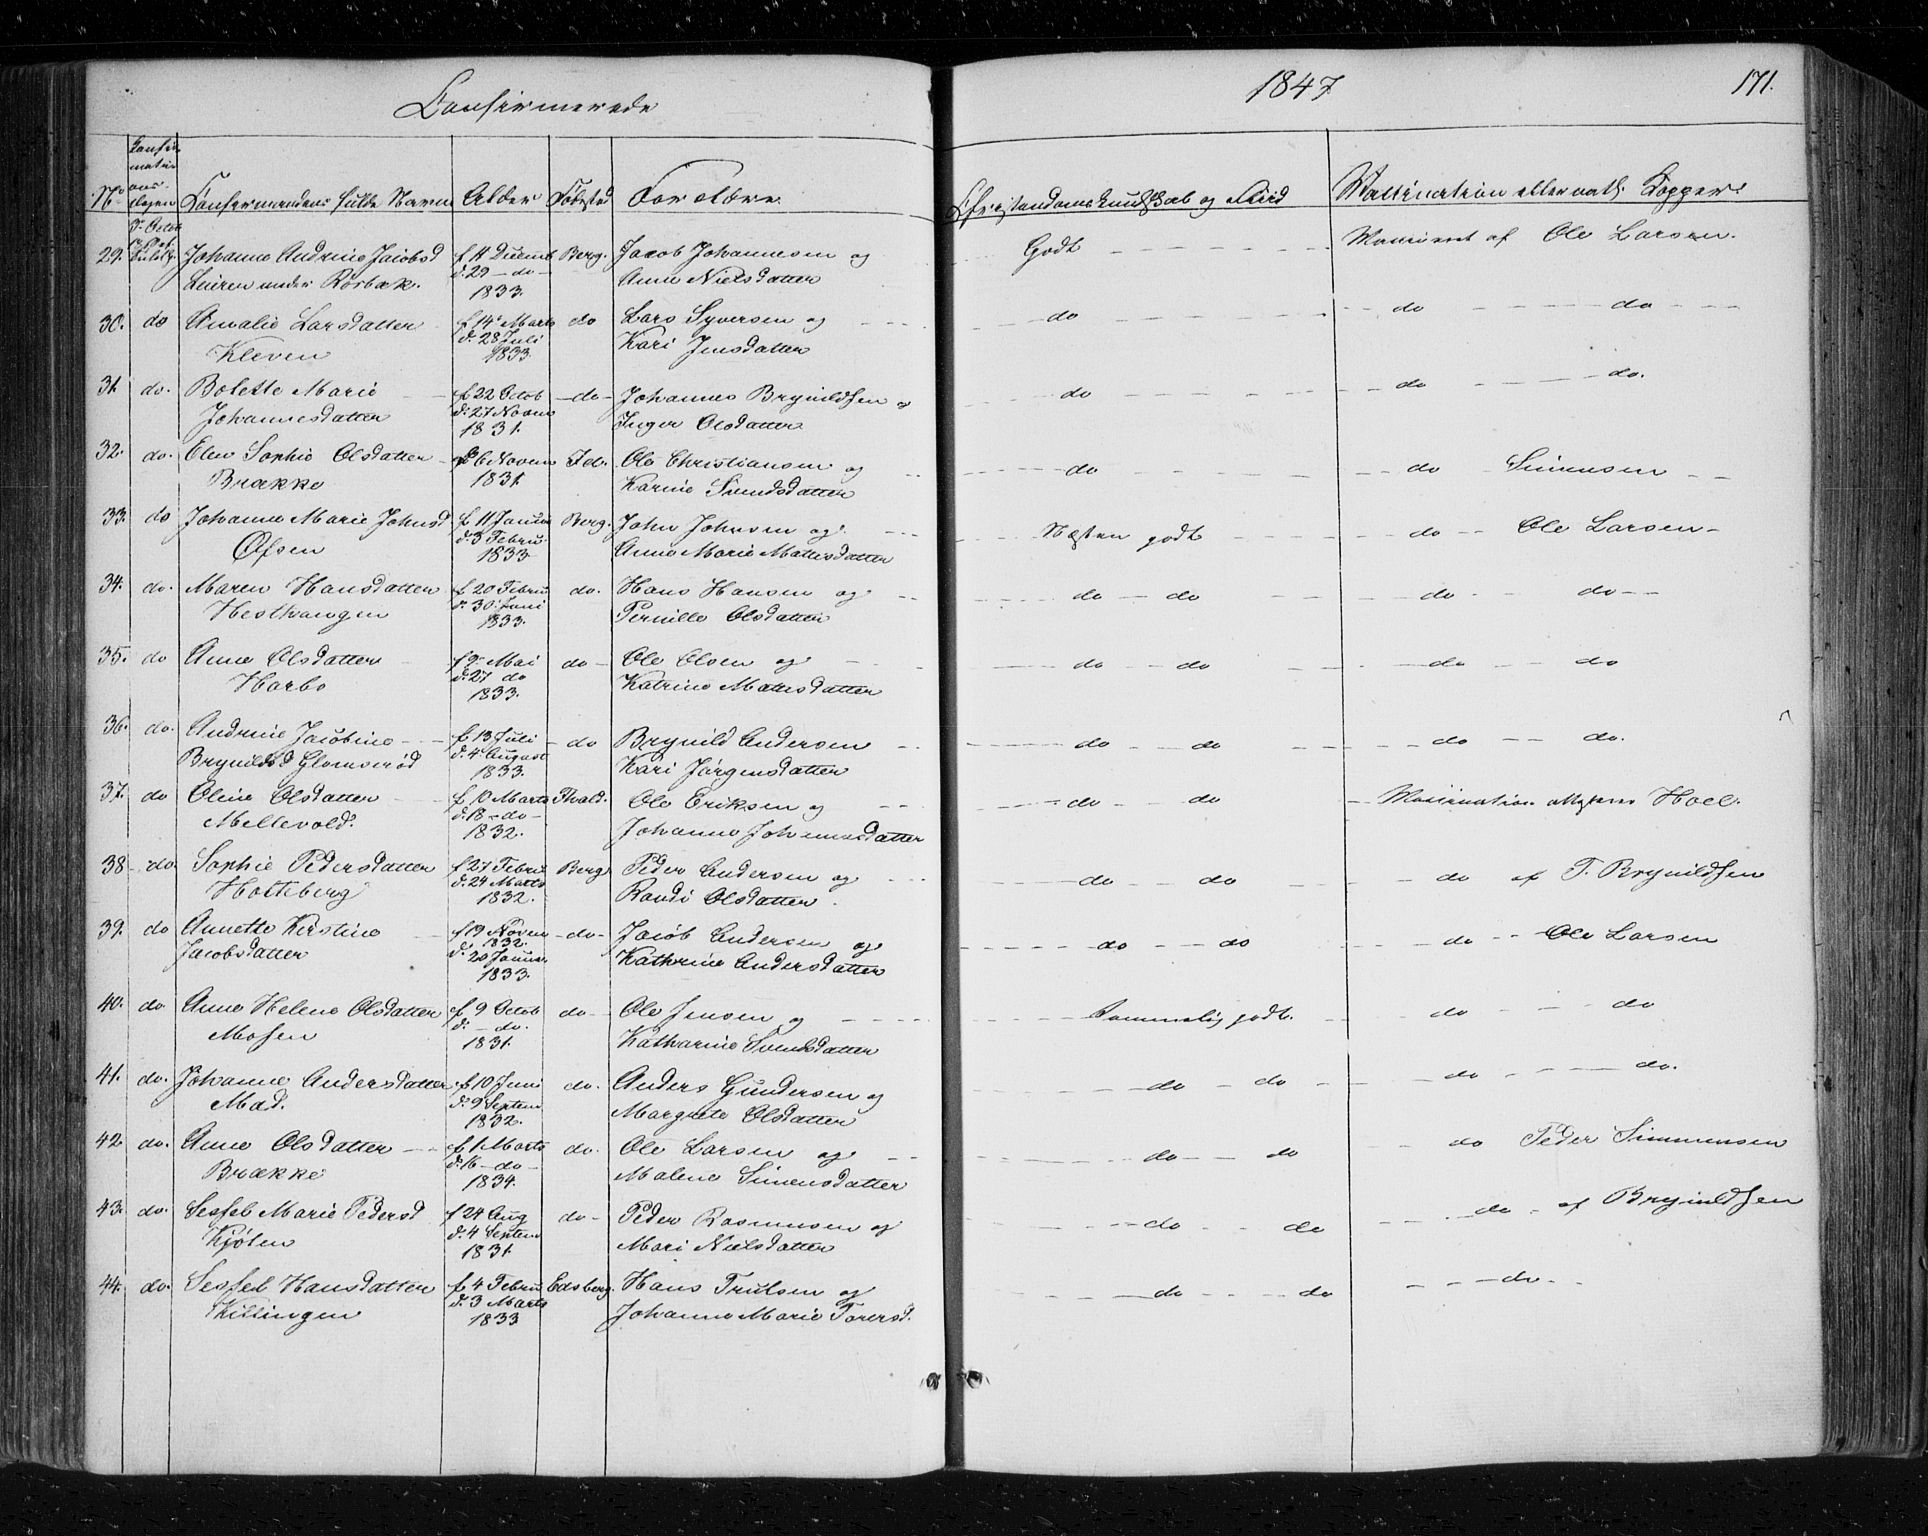 Confirmerede
1847
171.
No Confirmations-dagen Confirmandens fulde Navn Alder Fødested Forældre Christendoms Kundskab og Flid Vaccination eller nath. Kopper
29. Johanne Andrine Jacobsd f 11 Decemb Berg. Jacob Johannesen og Godt Vaccineret af Ole Larsen.
Leiren under Rørbæk. d. 29 - do - Anne Nielsdatter
1833.
30. do Amalie Larsdatter f 14 Marts do Lars Syversen og do do do
Kleven d. 28 Juli Kari Jensdatter
1833.
31. do. Bolette Marie f 22 Octob do Johannes Brynildsen og do do do.
Johannesdatter d. 27 Novem Inger Olsdatter
1831.
32. do. Elen Sophie Olsdatter f 6 Novem Id. Ole Christiansen og do do Simensen
Brække 1831. Karine Svendsdatter
33. do Johanne Marie Johnsd f 11 Januar Berg. John Johnsen og Næsten godt do Ole Larsen
Øfsen d. 3 Febru. Anne Marie Mattisdatter
1833
34. do. Maren Hansdatter f 20 Febru do. Hans Hansen og do do do do
Hesthaugen d. 30 Juni Pernille Olsdatter
1833.
35. do Anne Olsdatter f 9 Mai do Ole Olsen og do do do do
Harbo d. 27 do Katrine Mattisdatter
1833.
36. do. Andrine Jacobine f. 13 Juli do Brynild Andersen do do do do.
Brynildsd Glomserød d. 4 August Kari Jørgensdatter
1833.
37. do Oline Olsdatter f. 10 Marts Thvald. Ole Eriksen og do do Vaccination attesteret Hoel.
Mellevold. d. 18 - do - Johanne Johannesdatter
1832.
38 do. Sophie Pedersdatter f 27 Febru Berg Peder Andersen og do do do af T. Brynildsen
Holteberg d. 24 Marts Randi Olsdatter.
1832.
39. do Annette Kirstine f 19 Novem do Jacob Andersen og do do do Ole Larsen
Jacobsdatter 1832. Kathrine Andersdatter
d. 20 Januar
1833.
40. do Anne Helene Olsdatter f 9 Octob do Ole Jensen og Temmelig godt. do do
Mosen d. - do. Katharine Svendsdatter
1831.
41. do. Johanne Andersdatter f 10 Juni do. Anders Gundersen og do do do do.
Mad. d. 9 Septem Margrete Olsdatter
1832.
42. do. Anne Olsdatter f. 1 Marts do. Ole Larsen og do do do Peder Simmensen
Brække d. 16 - do - Malene Simensdatter
1834.
43. do. Sessel Marie Pedersd f 24 Aug do Peder Rasmusen og do do do af Brynildsen
Kjølen d. 4 Septem Mari Nielsdatter
1831.
44. do. Sessel Hansdatter f. 4 Febru Edsberg. Hans Trulsen og do do do
Killingen d. 3 Marts Johanne Marie Torersd.
1833